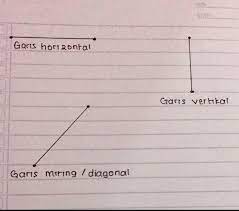 Garis horizontal
Garis vertikal
Garis miring / diagonal